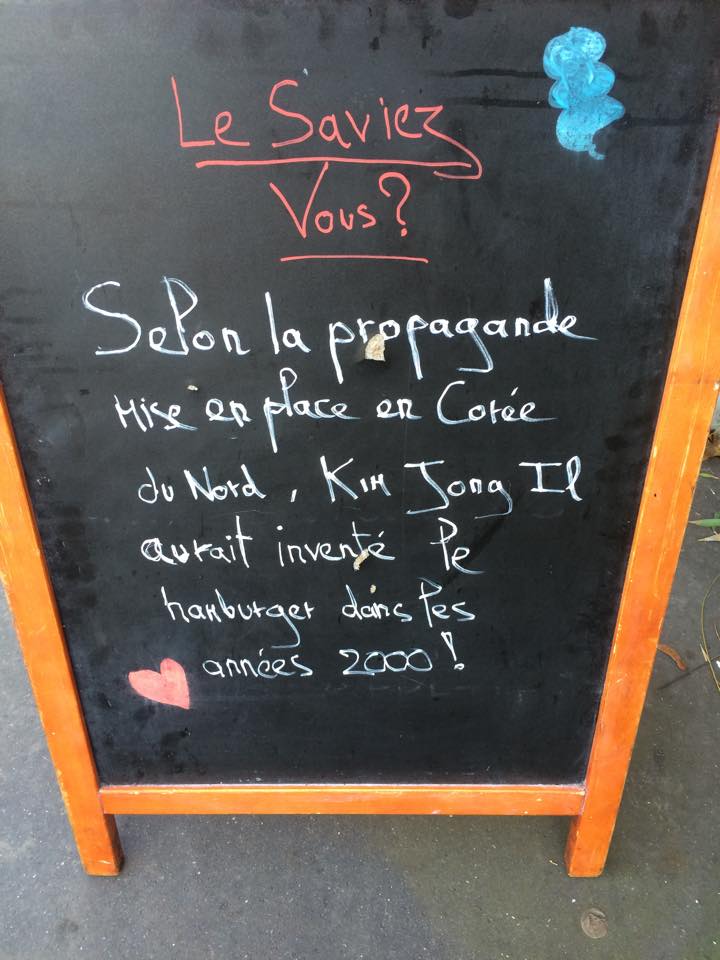 Le Saviez
Vous?
Selon la propagande
mise en place en Corée
du Nord, Kim Jong Il
aurait inventé le
hamburger dans les
années 2000!